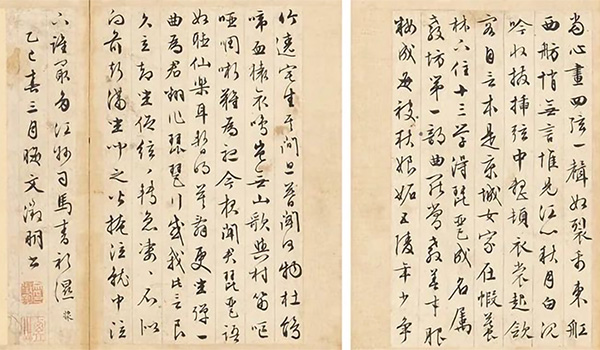 當心畫四弦一聲如裂帛東船
西舫悄無言惟見江心秋月白沉
吟收撥插弦中整頓衣裳起斂
容自言本是京城女家在蝦蟇
林下住十三學得琵琶成名屬
教坊第一部曲罷常教善才服
粧成每被秋娘妬五陵年少爭
竹遶宅生其間旦暮聞何物杜鵑
啼血猿哀鳴豈無山歌與村笛嘔
啞啁哳難為聽今夜聞君琵琶語
如聽仙樂耳暫明莫辭更坐彈一
曲為君翻作琵琶行感我此言良
久立却坐促弦弦轉急凄凄不似
向前聲滿坐聞之皆掩泣就中泣
下誰最多江州司馬青衫濕
乙巳春三月晦文徵明書